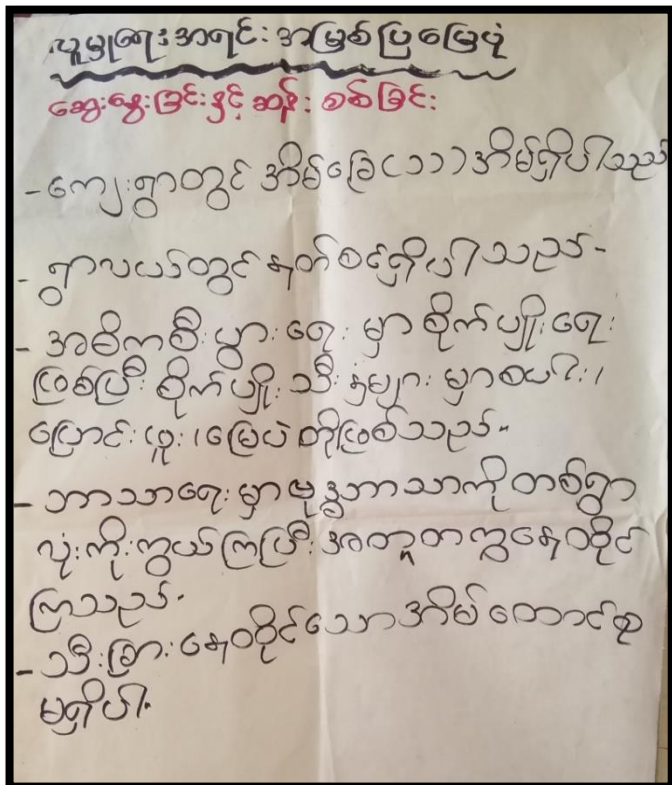 လူမှုရေးအရင်းအမြစ်ပြမြေပုံ
ဆွေးနွေးခြင်းနှင့်ဆန်းစစ်ခြင်း
-ကျေးရွာတွင် အိမ်ခြေ(၁၁)အိမ်ရှိပါသည်
-ရွာလယ်တွင်နတ်စင်ရှိပါသည်-
-အဓိကစီးပွားရေးမှာ စိုက်ပျိုးရေး
ဖြစ်ပြီး စိုက်ပျိုးသီးနှံများမှာစပါး၊
ပြောင်းဖူး၊မြေပဲတို့ဖြစ်သည်-
-ဘာသာရေးမှာဗုဒ္ဓဘာသာကိုတစ်ရွာ
လုံးကိုးကွယ်ကြပြီးအတူတကွနေထိုင်
ကြသည်-
-သီးခြားနေထိုင်သောအိမ်ထောင်စု
မရှိပါ-